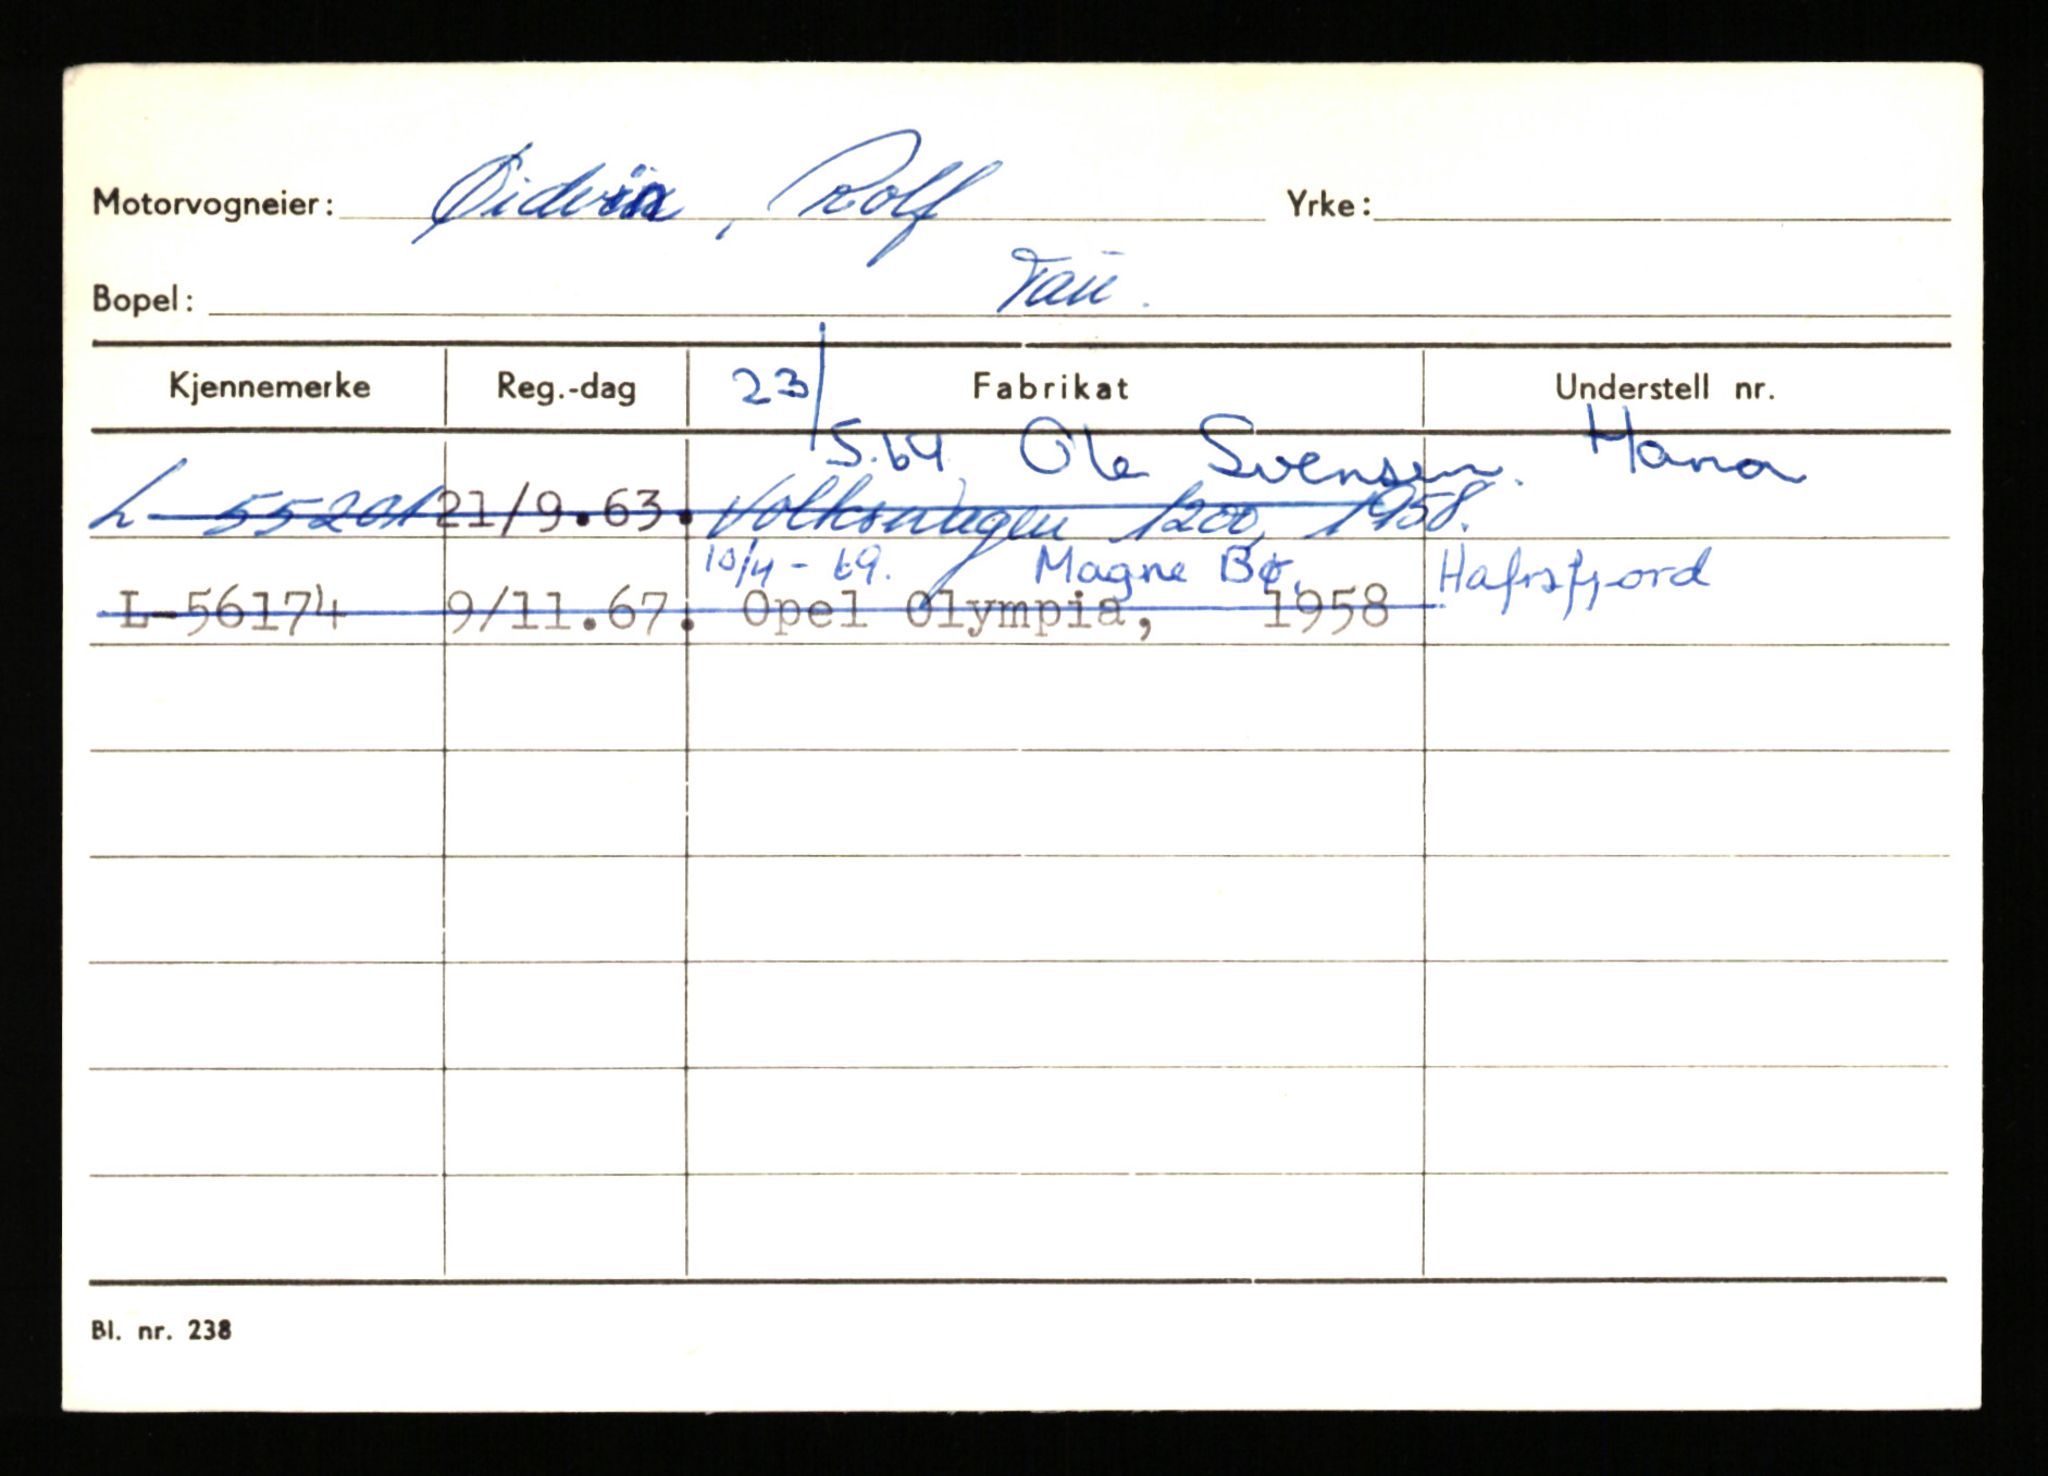 Motorvogneier: Øidvin, Rolf Yrke:
Bopel: Tau.
Kjennemerke Reg.-dag Fabrikat Understell nr.
23/5.64 Ole Svensen. Hana
L-55201 21/9.63. Volkswagen 1200, 1958.
10/4-69. Magne Bø, Hafrsfjord
L-56174 9/11.67. Opel Olympia, 1958
Bl. nr. 238